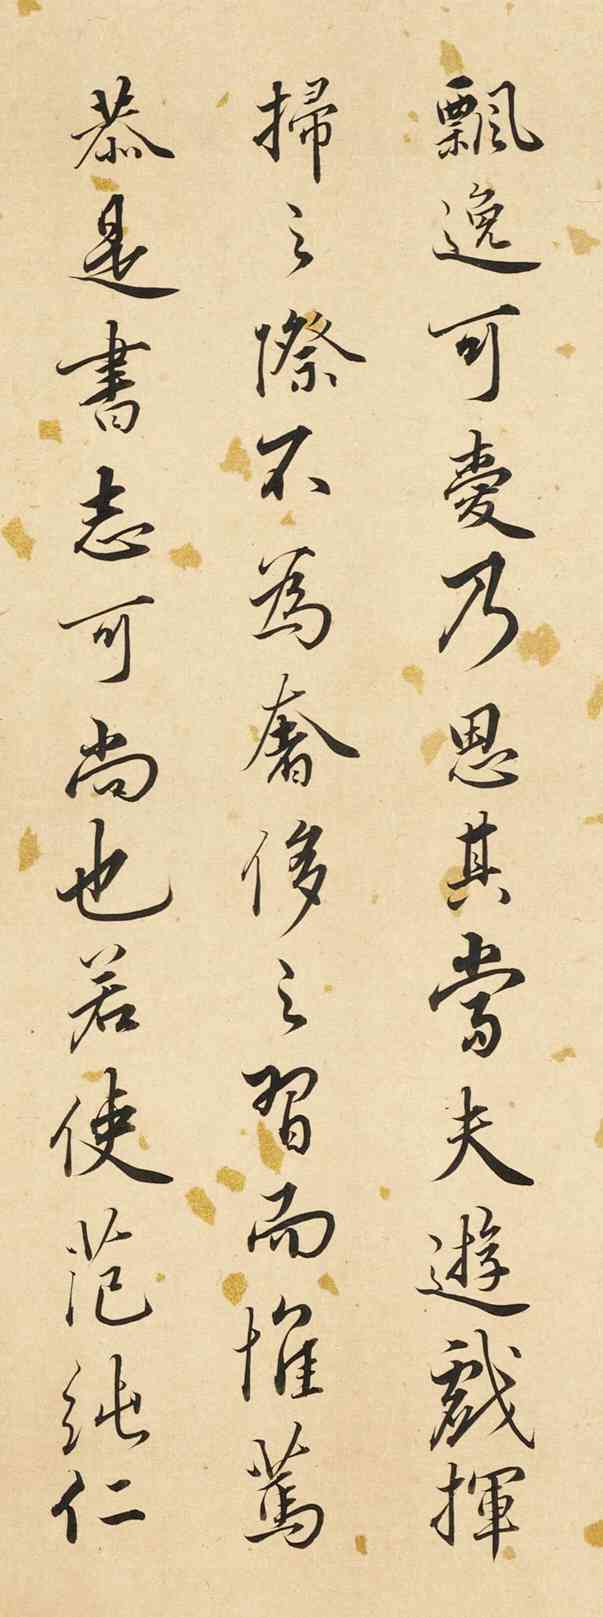 飄逸可愛乃思其當夫遊戲揮
掃之際不為奢侈之習而惟篤
恭是書志可尚也若使范純仁